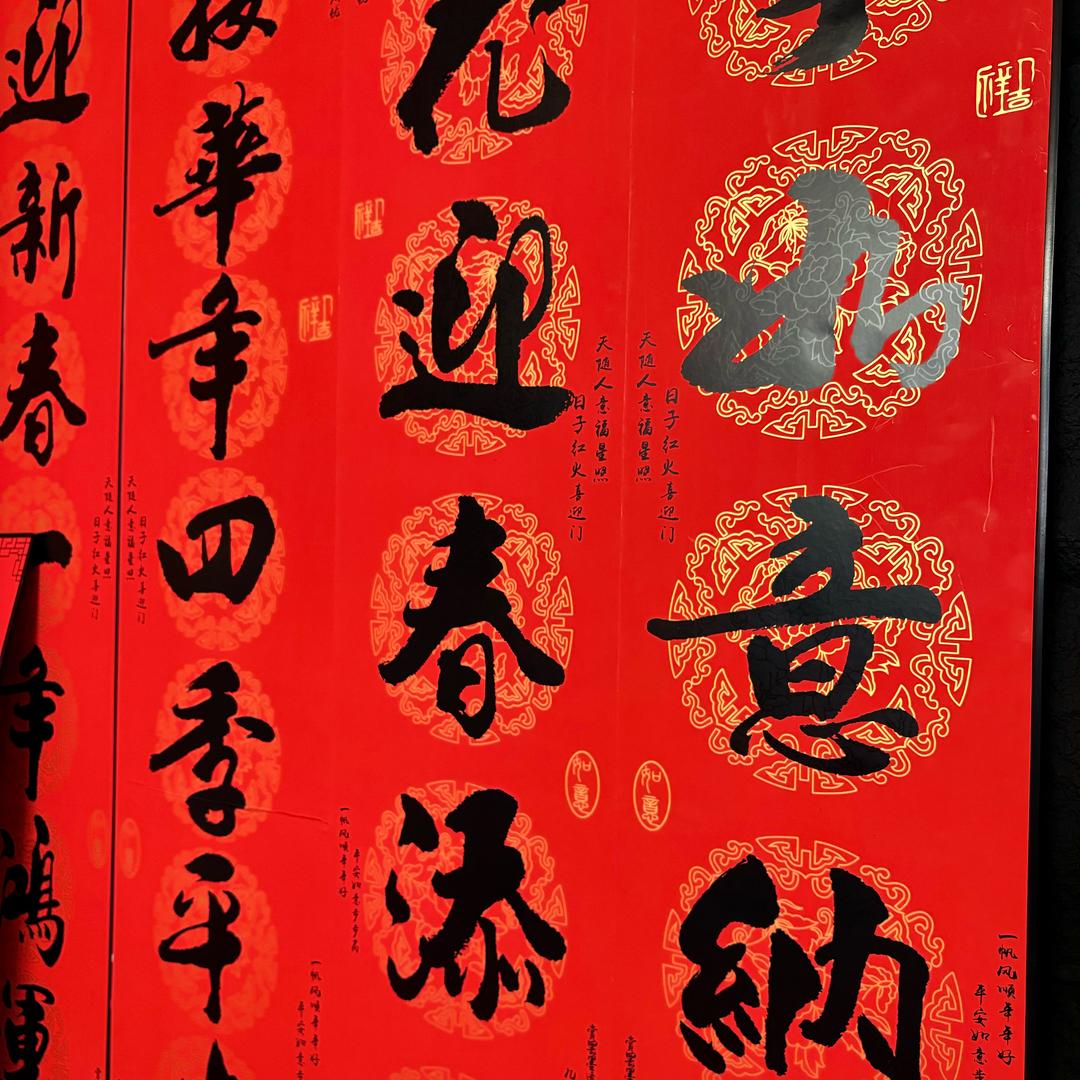 迎新春
年鴻運
接華年四季平
花迎春添
如意納
吉祥
吉祥
吉祥
天随人意福星照
日子红火喜迎门
天随人意福星照
日子红火喜迎门
天随人意福星照
日子红火喜迎门
天随人意福星照
日子红火喜迎门
如意
如意
一帆风顺年年好
平安如意步步高
一帆风顺年年好
平安如意
一帆风顺年年好
平安如意步